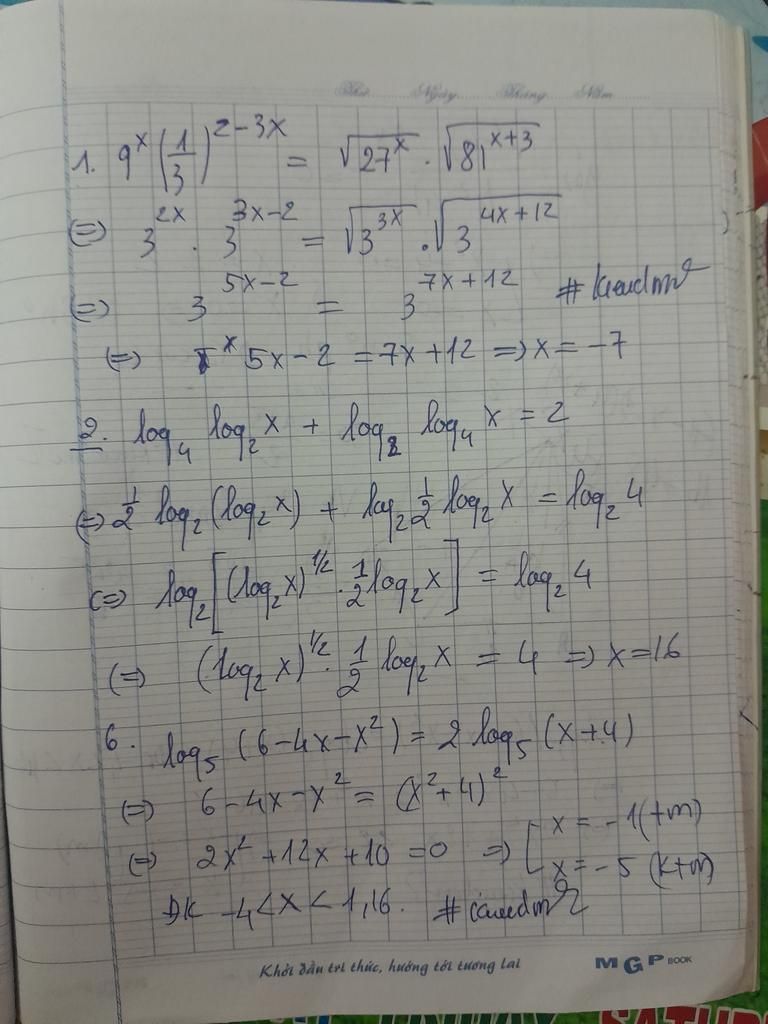 Thứ Ngày Tháng Năm
1. 9^x (1/3)^(2-3x) = √(27^x) . √(81^(x+3))
(=) 3^(2x) . 3^(3x-2) = √(3^(3x)) . √(3^(4x+12))
(=) 3^(5x-2) = 3^(7x+12)
(=) 5x-2 = 7x+12 => x = -7
2. log_4 log_2 x + log_2 log_4 x = 2
(=) 1/2 log_2 (log_2 x) + log_2 1/2 log_2 x = log_2 4
(=) log_2 [(log_2 x)^(1/2) . 1/2 log_2 x] = log_2 4
(=) (log_2 x)^(1/2) . 1/2 log_2 x = 4 => x = 16
6. log_5 (6-4x-x^2) = 2 log_5 (x+4)
(=) 6-4x-x^2 = (x^2+4)^2
(=) 2x^2+12x+10 = 0 => [ x = -1 (tm)
x = -5 (ktm)
ĐK -4<x<1,16.
Khởi đầu tri thức, hướng tới tương lai MGP BOOK